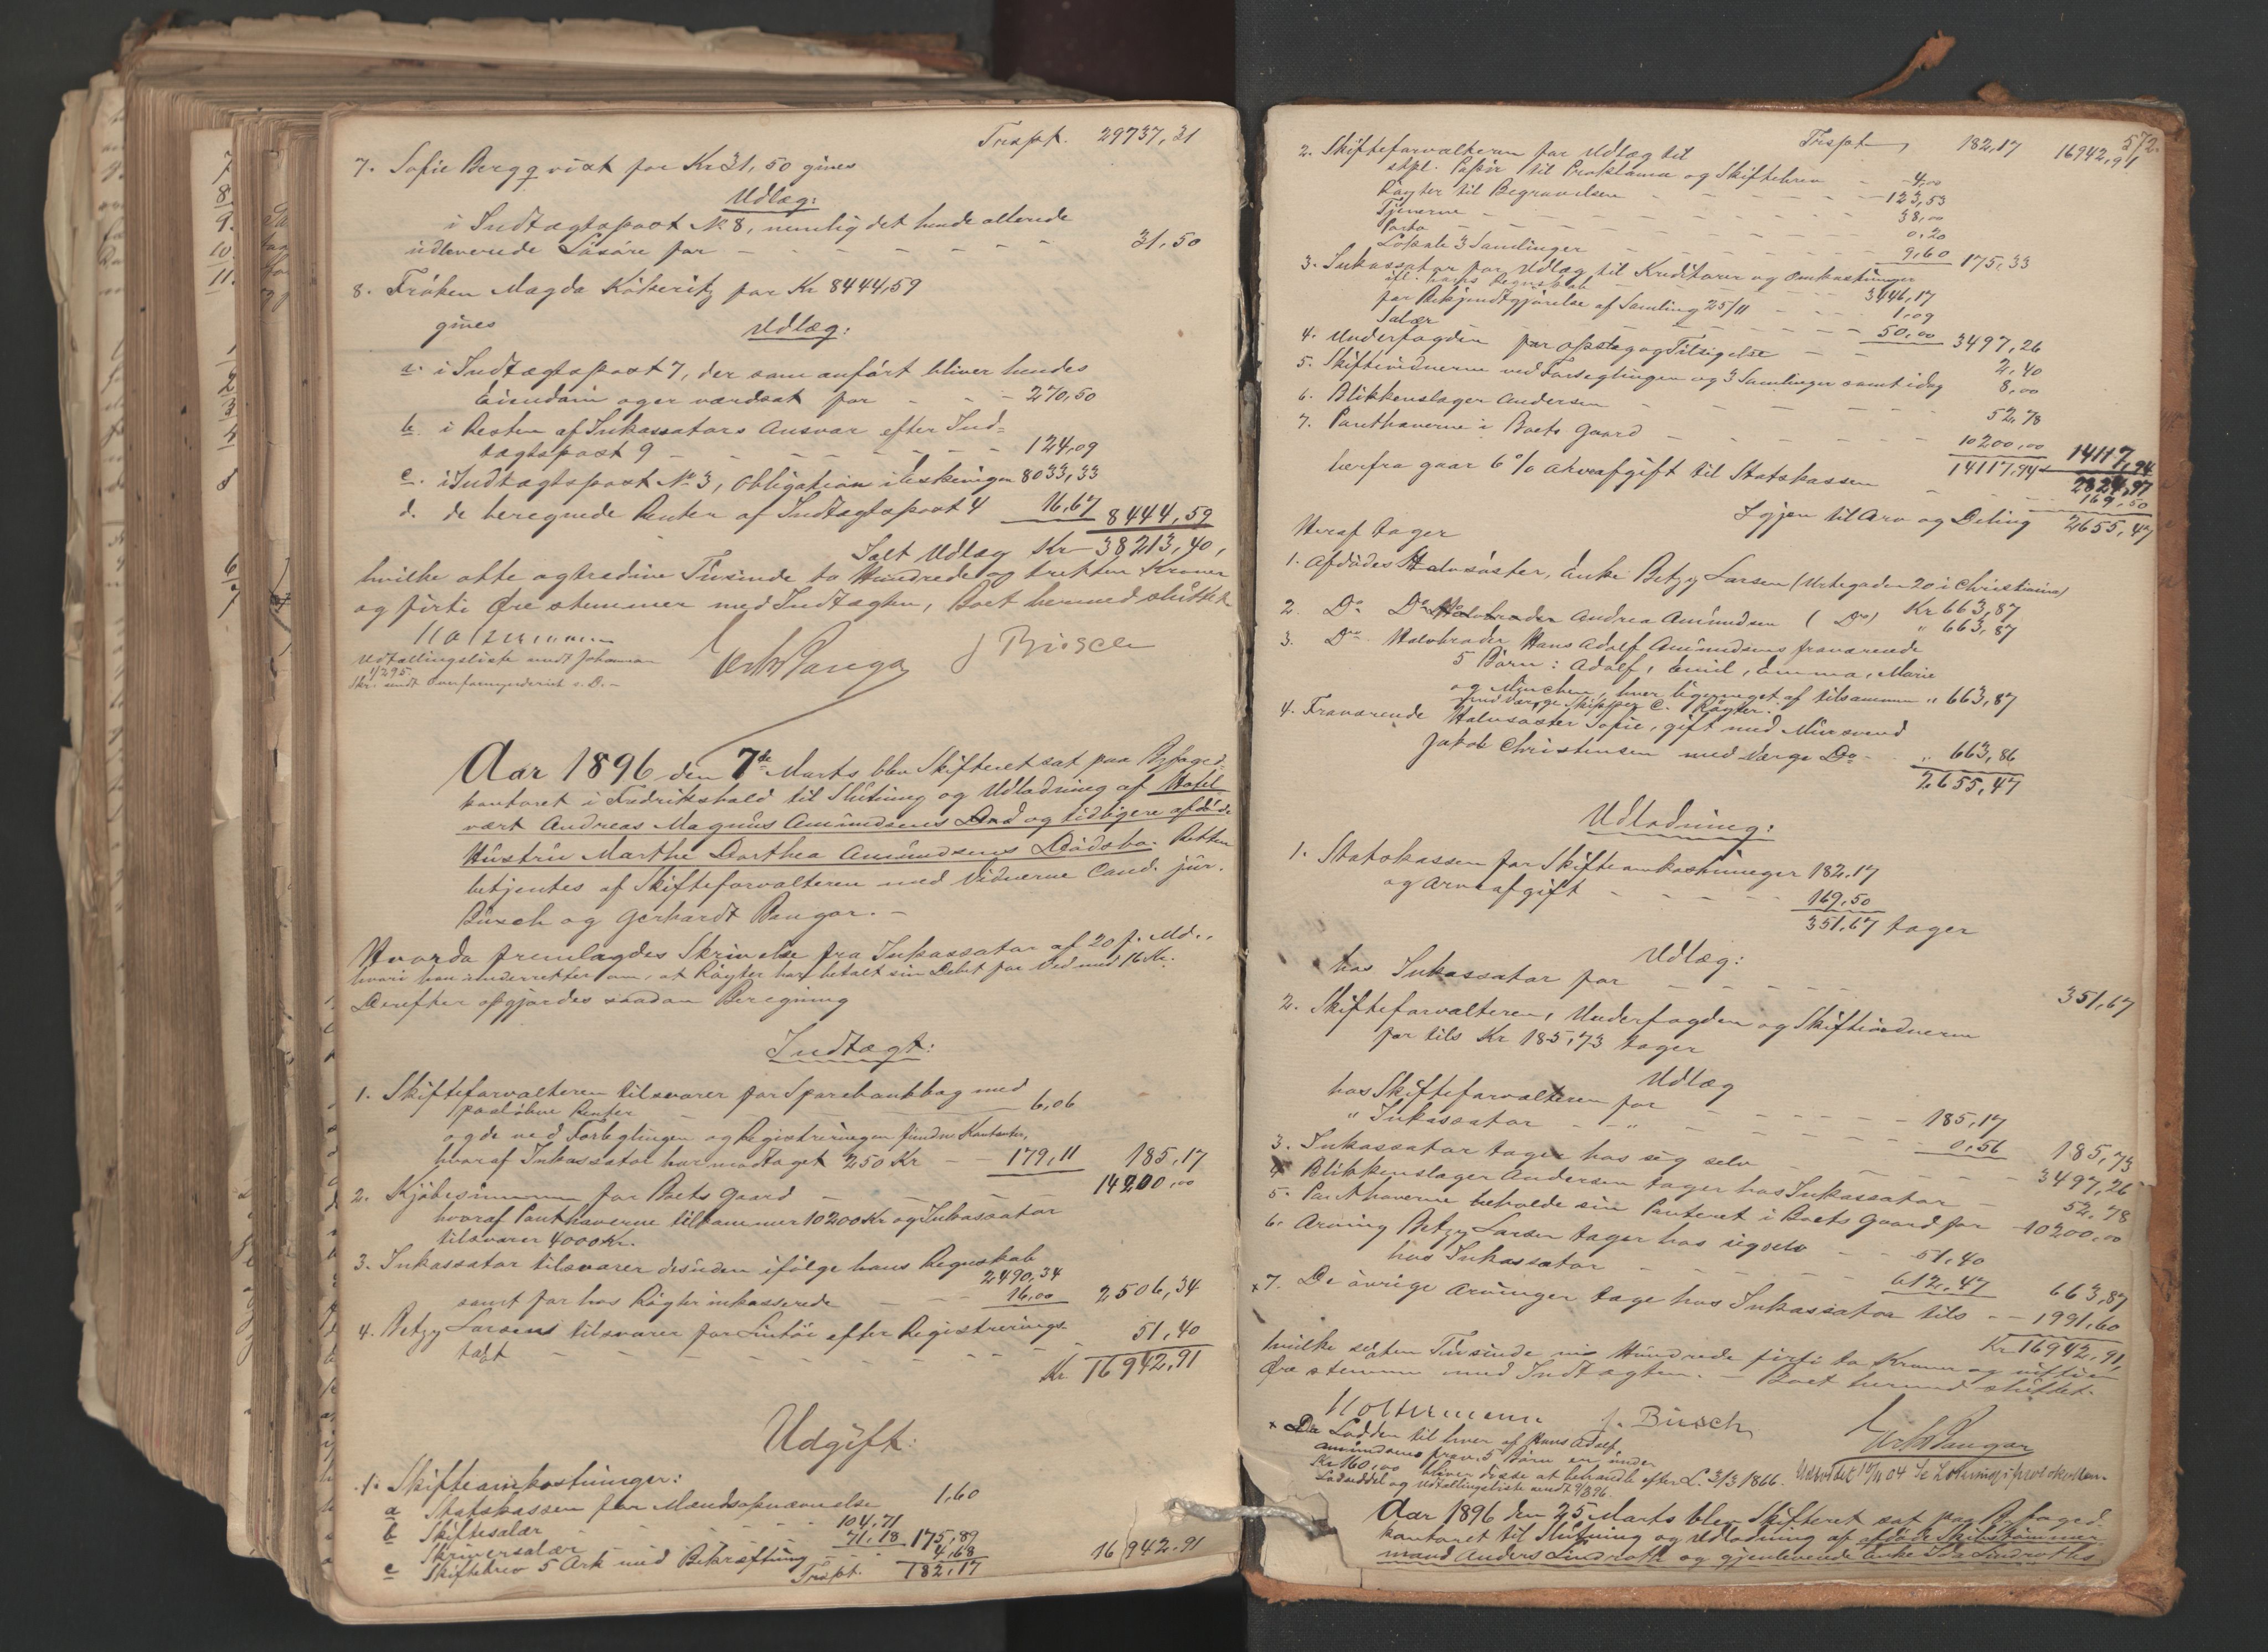 Trspt. 29737,31
7. Sofie Bergqvist for Kr 31,50 gives
Udlæg:
i Indtægtspost N. 8, nemlig det hende allerede
udleverede Løsøre for - - - - - - 31,50
8. Frøken Magda Kölseritz for Kr 8444,59
gives Udlæg:
a. i Indtægtspost 7, der som anført bliver hendes
Eiendom og er værdsat for - - - 270,50
b. i Resten af Inkassators Ansvar efter Ind=
tægtspost 9 - - - - - - - 124,09
c. i Indtægtspost No 3, Obligation 8033,33
d. de beregnede Renter af Indtægtspost 4 16,67 8444,59
Ialt Udlæg Kr 38213,40,
hvilke otte og tredive Tusinde to Hundrede og tretten Kroner
og førti Øre stemmer med Indtægten, Boet hermed sluttet
Udtællingsliste sendt Johannsen
1/2 95.
Skr. sendt Overformynderiet s. D. -
J Büsch
Aar 1896 den 7de Marts blev Skifteret sat paa Byfoged=
kontoret i Fredrikshald til Slutning og Udlodning af Hotel
vært Andreas Magnus Amundsens Død og tidligere afdøde
Hustru Marthe Dorthea Amundsens Dødsbo. Retten
betjentes af Skifteforvalteren med Vidnerne Cand. jur.
Büsch og Gerhardt Bangar. -
Hvorda fremlagdes Skrivelse fra Inkassator af 20 f. Md.,
hvori han underretter om, at Røgter har betalt sin Debet for Ved med 16 Kr.
Derefter opgjordes saadan Beregning
Indtægt:
1. Skifteforvalteren tilsvarer for Sparebankbog med
paaløbne Renter 6,06
og de ved Forseglingen og Registreringen fundne Kontanter,
hvoraf Inkassator har modtaget 250 Kr - - 179,11 185,17
2. Kjøbesummen for Boets Gaard - - - - 14200,00
hvoraf Panthaverne tilkommer 10200 Kr og Inkassator
tilsvarer 4000 Kr.
3. Inkassator tilsvarer desuden ifølge hans Regnskab
2490,34
samt for hos Røgter inkasserede - - 16,00 2506,34
4. Betzy Larsens tilsvarer for Lintøi efter Registrerings=
takt - - - - - - - - - 51,40
Kr 16942,91
Udgift:
1. Skifteomkostninger:
a Statskassen for Mændsopnævnelse 1,60
b Skiftesalær - - - - 104,71
Skriversalær - - - - 71,18 175,89
c Skiftebrev 5 Ark med Bekræftning - - 4,68
Trspt. 182,17 16942,91
572.
Trspt, 182,17 16942,91
2. Skifteforvalteren for Udlæg til
stpl. Papir til Proklama og Skiftebrev - 4,00
Røgter til Begravelsen - - - - 123,53
Tjenerne - - - - - - 38,00
Porto - - - - - - 0,20
Lokale 3 Samlinger - - - - 9,60 175,33
3. Inkassator for Udlæg til Kreditorer og Omkostninger
ifl. hans Regnskab - - - 3446,17
for Bekjendtgjørelse af Samling 25/11 - - 1,09
Salær - - - - - - 50,00 3497,26
4. Underfogden for Opslag og Tilsigelse - - 2,40
5. Skiftevidnerne ved Forseglingen og 3 Samlinger samt idag 8,00
6. Blikkenslager Andersen - - - - - 52,78
7. Panthaverne i Boets Gaard - - - - 10200,00
14117,94 14117,94
2824,97
herfra gaar 6 % Arveafgift til Statskassen - - 169,50
Igjen til Arv og Deling 2655,47
Heraf tager
1. Afdødes Halvsøster, Enke Betzy Larsen (Urtegaden 20 i Christiania)
Kr 663,87
2. Do Do Andrea Amundsen ( Do) " 663,87
3. Do Halvbroder Hans Adolf Amundsens fraværende
5 Børn: Adolf, Emil, Emma, Marie
og München, hver ligemeget af tilsammen " 663,87
med Værge Skipper C. Røgter.
4. Fraværende Halvsøster Sofie, gift med Mursvend
Jakob Christensen med Værge Do - " 663,86
2655,47
Udlodning:
1. Statskassen for Skifteomkostninger 182,17
og Arveafgift - - - - - 169,50
351,67 tager
Udlæg:
hos Inkassator for - - - - - - 351,67
2. Skifteforvalteren, Underfogden og Skiftevidnerne
for tils Kr 185,73 tager
Udlæg
hos Skifteforvalteren for - - - - 185,17
" Inkassator - - " - - - - 0,56 185,73
3. Inkassator tager hos sig selv - - - - 3497,26
4. Blikkenslager Andersen tager hos Inkassator - 52,78
5. Panthaverne beholde sin Panteret i Boets Gaard for 10200,00
6. Arving Betzy Larsen tager hos sig selv - - 51,40
hos Inkassator - - - - 612,47 663,87
x7. De øvrige Arvinger tage hos Inkassator tils - - 1991,60
Kr 16942,91,
hvilke sexten Tusinde ni Hundrede førti to Kroner og nitti en
Øre stemme med Indtægten. - Boet hermed sluttet.
Holtermann J. Büsch
x Da Lodden til hver af Hans Adolf
Amundsens frav. 5 Børn er under
Kr 160,00 bliver disse at behandle efter L. 3/3 1866.
Lodseddel og Udtællingsliste sendt 9/3 96.
Aar 1896 den 25 Marts blev Skifteret sat paa Byfoged=
kontoret til Slutning og Udlodning af afdøde Skibstømmer=
mand Anders Lindroth og gjenlevende Enke Ida Lindroths